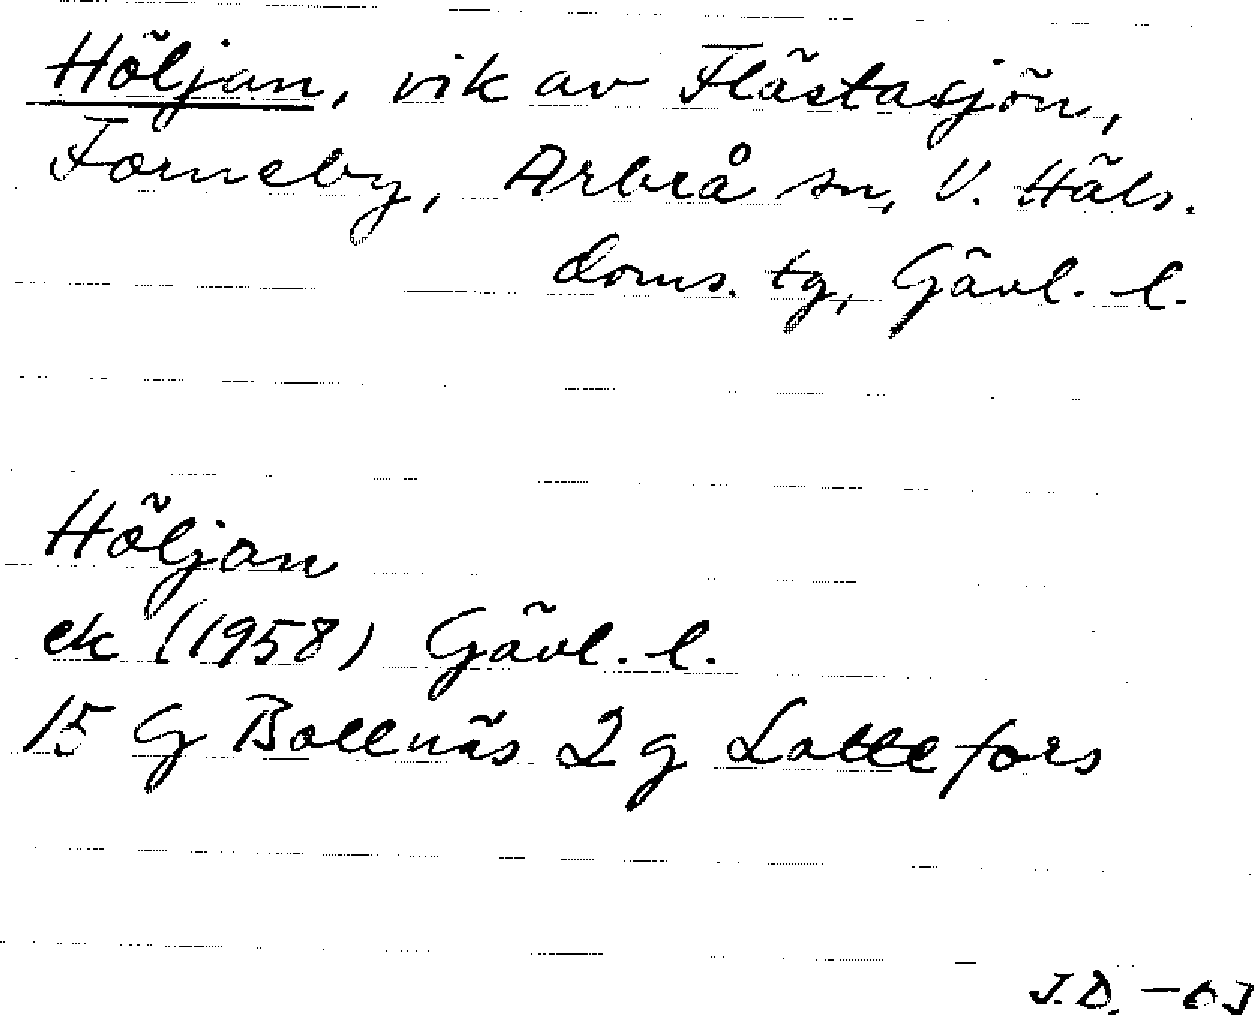 Höljan, vik av Flästasjön,
Forneby, Arbrå sn, V. Häls.
doms. tg, Gävl. l.
Höljan
ek (1958) Gävl. l.
15 G Bollnäs 2 g Lottefors
J.D.